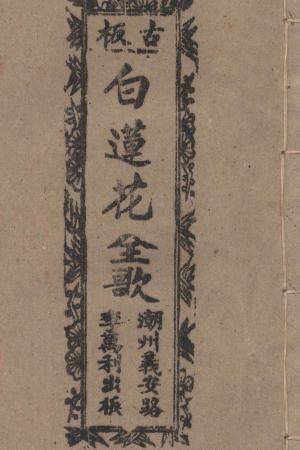 古板
白蓮花全歌
潮州義安路
李萬利出板